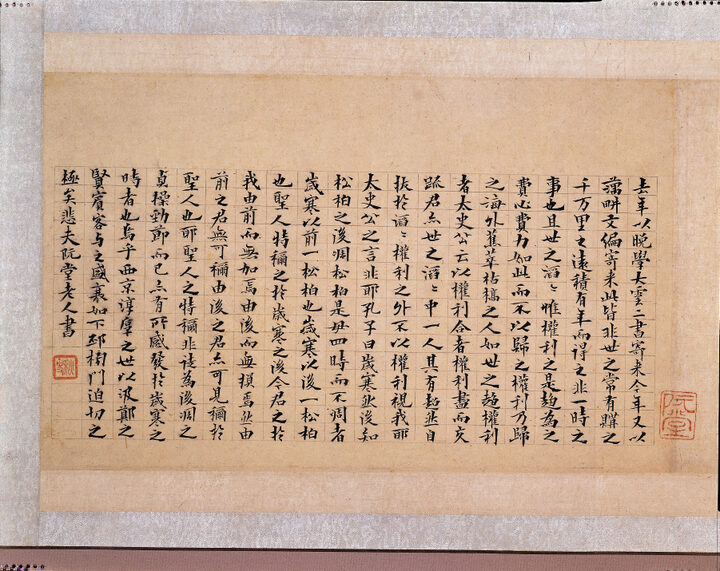 去年以晚學大雲二書寄來今年又以
藕畊文編寄來此皆非世之常有購之
千万里之遠積有年而得之非一時之
事也且世之滔〻惟權利之是趨為之
費心費力如此而不以歸之權利乃歸
之海外蕉萃枯稿之人如世之趨權利
者太史公云以權利合者權利盡而交
疏君亦世之滔〻中一人其有超然自
拔於滔〻權利之外不以權利視我耶
太史公之言非耶孔子曰歲寒然後知
松柏之後凋松柏是毌四時而不凋者
歲寒以前一松柏也歲寒以後一松柏
也聖人特稱之於歲寒之後今君之於
我由前而無加焉由後而無損焉然由
前之君無可稱由後之君亦可見稱於
聖人也耶聖人之特稱非徒為後凋之
貞操勁節而已亦有所感發於歲寒之
時者也烏乎西京淳厚之世以汲鄭之
賢賓客与之盛衰如下邳榜門迫切之
極矣悲夫阮堂老人書
阮堂